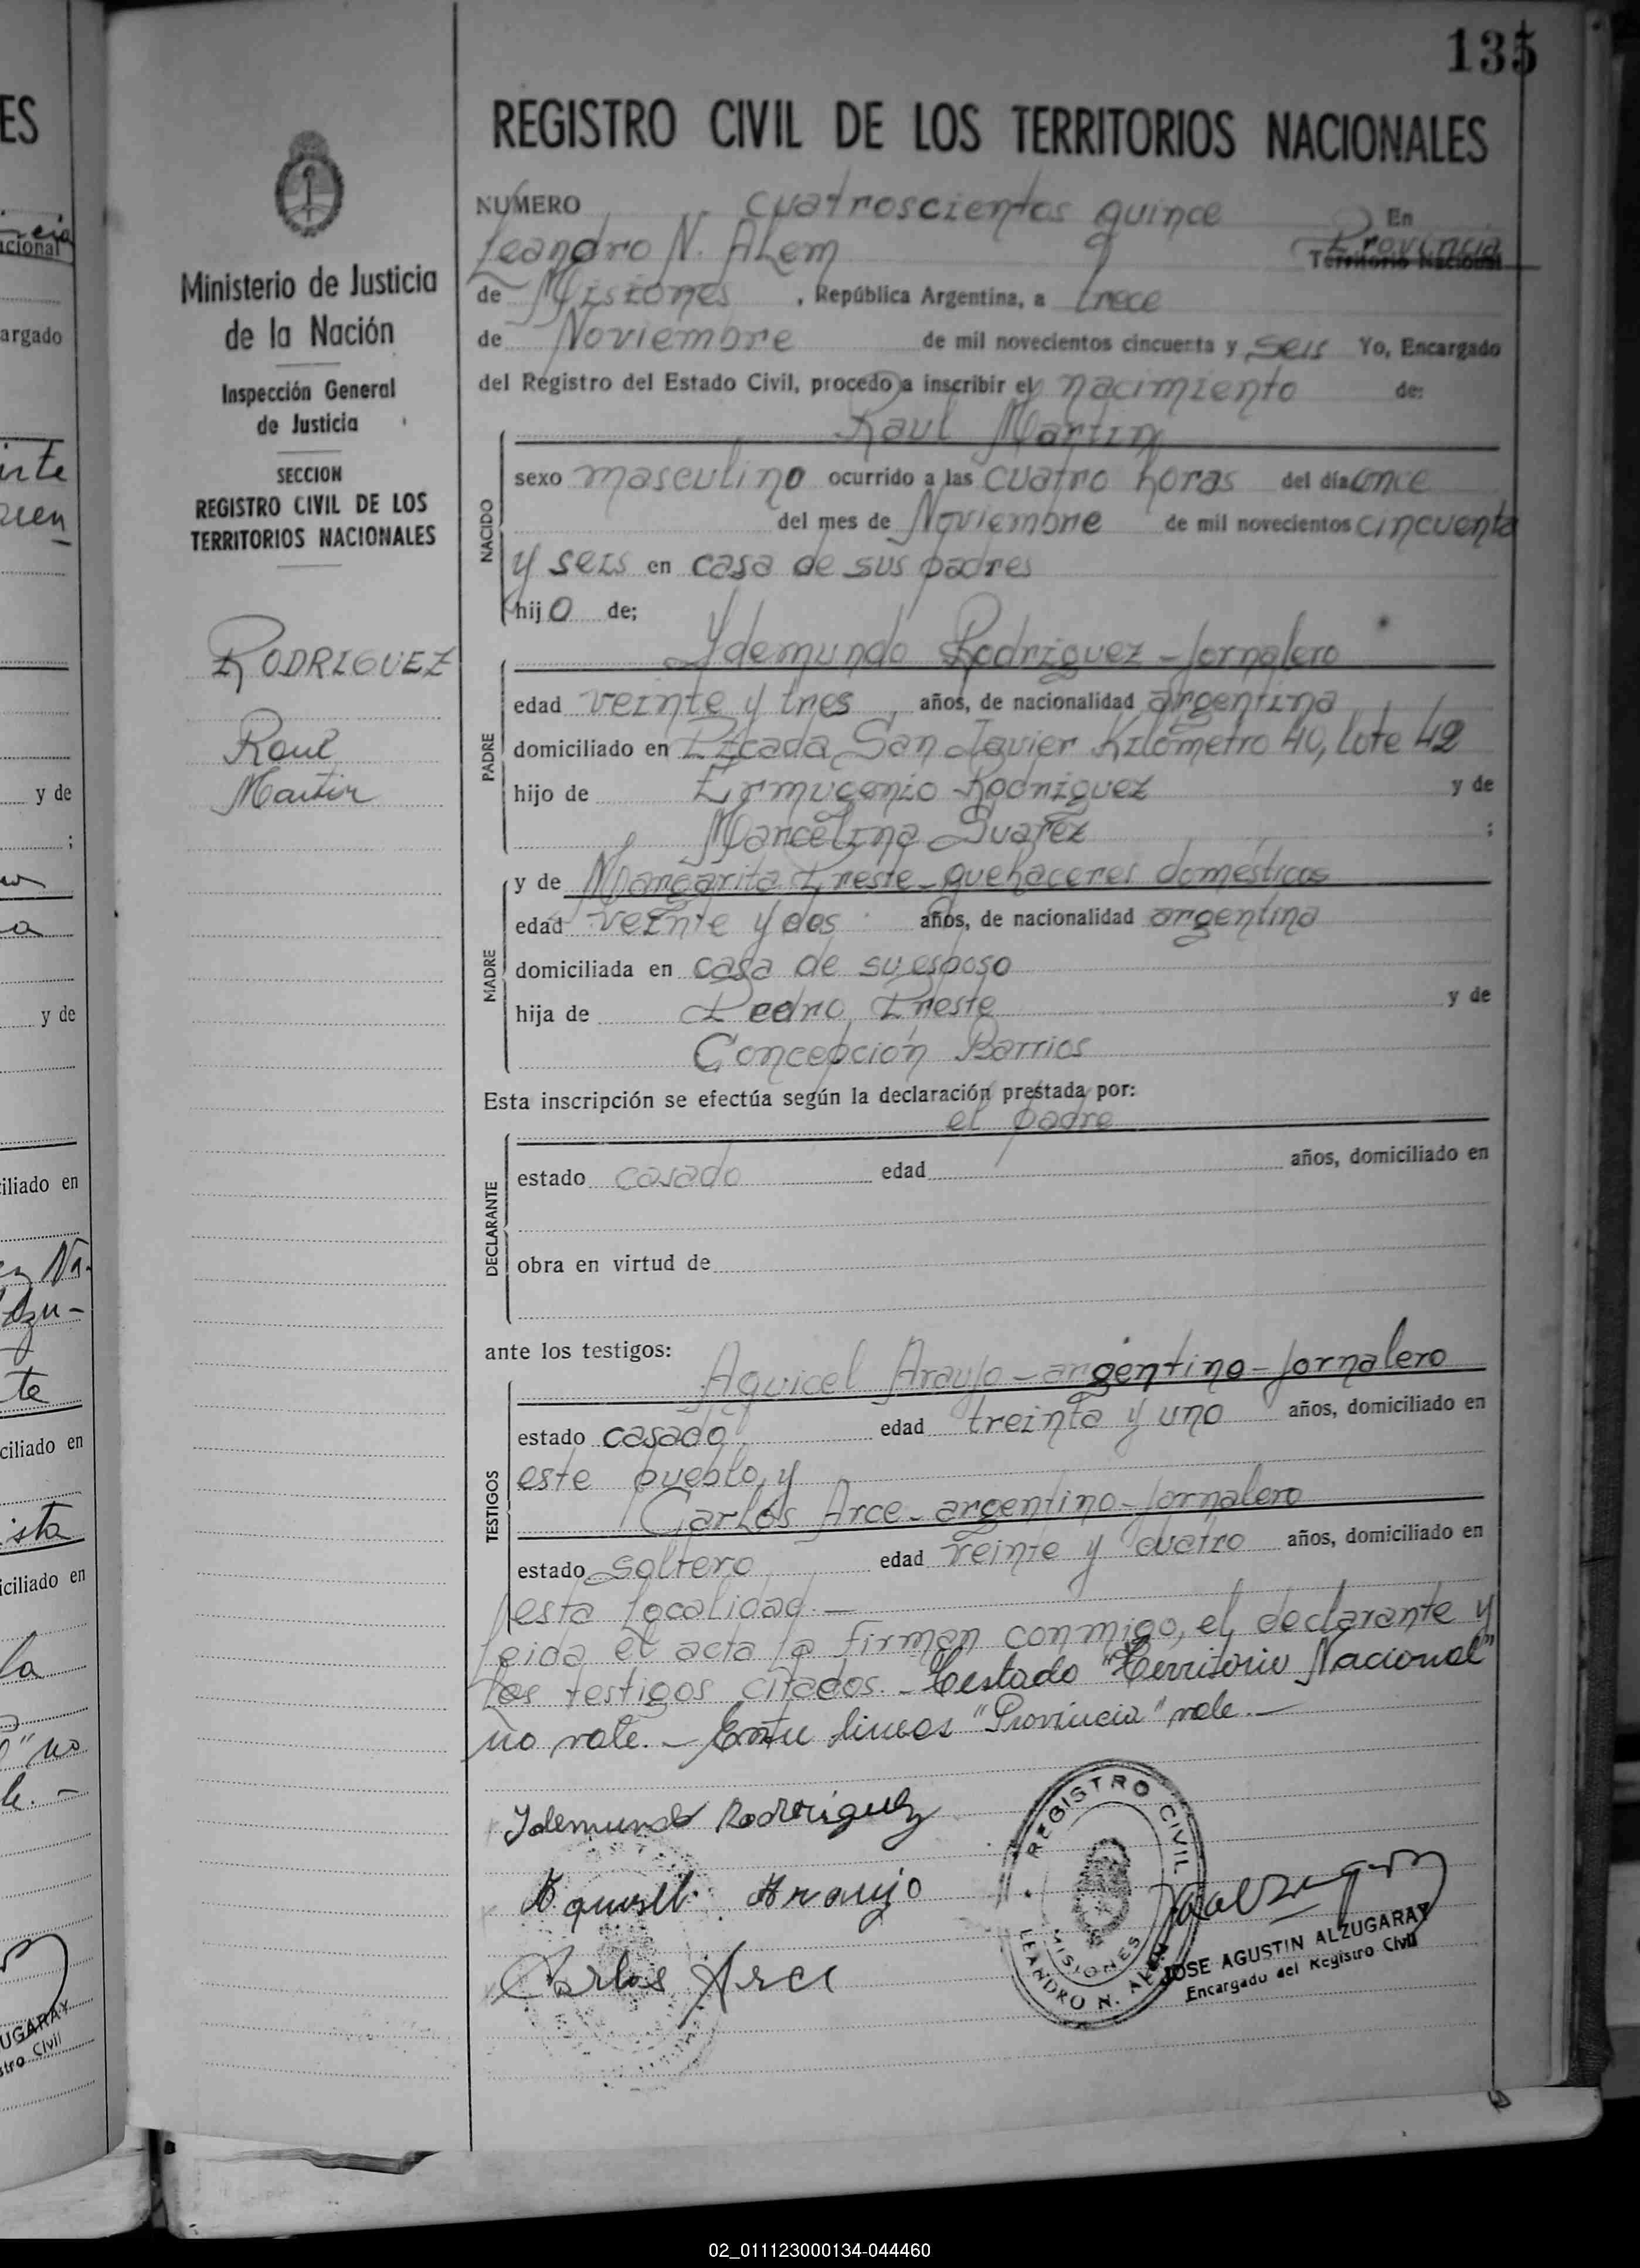 135
REGISTRO CIVIL DE LOS TERRITORIOS NACIONALES
Ministerio de Justicia
de la Nación
Inspección General
de Justicia
SECCION
REGISTRO CIVIL DE LOS
TERRITORIOS NACIONALES
RODRIGUEZ
Raul
Martin
NUMERO cuatroscientos quince En
Leandro N. Alem Provincia
Territorio Nacional
de Misiones, República Argentina, a trece
de Noviembre de mil novecientos cincuenta y seis Yo, Encargado
del Registro del Estado Civil, procedo a inscribir el nacimiento de:
Raul Martin
NACIDO
sexo masculino ocurrido a las cuatro horas del día once
del mes de Noviembre de mil novecientos cincuenta
y seis en casa de sus padres
hijo de;
PADRE
Ydemundo Rodriguez - Jornalero
edad veinte y tres años, de nacionalidad argentina
domiciliado en Picada San Javier Kilómetro 40, lote 42
hijo de Rodriguez y de
Marcelina Suarez ;
MADRE
y de Margarita Preste - quehaceres domésticos
edad veinte y dos años, de nacionalidad argentina
domiciliada en casa de su esposo
hija de Pedro Preste y de
Concepción Barrios
Esta inscripción se efectúa según la declaración prestada por:
el padre
DECLARANTE
estado casado edad años, domiciliado en
obra en virtud de
ante los testigos:
TESTIGOS
Araujo - argentino - Jornalero
estado casado edad treinta y uno años, domiciliado en
este pueblo, y
Carlos Arce - argentino - Jornalero
estado soltero edad veinte y cuatro años, domiciliado en
esta localidad. -
leida el acta la firman conmigo, el declarante y
los testigos citados. - Testado "Territorio Nacional"
no vale. - Entre lineas "Provincia" vale. -
Ydemundo Rodriguez
Araujo
Carlos Arce
REGISTRO CIVIL
MISIONES
LEANDRO N. ALEM
JOSE AGUSTIN ALZUGARAY
Encargado del Registro Civil
02_011123000134-044460